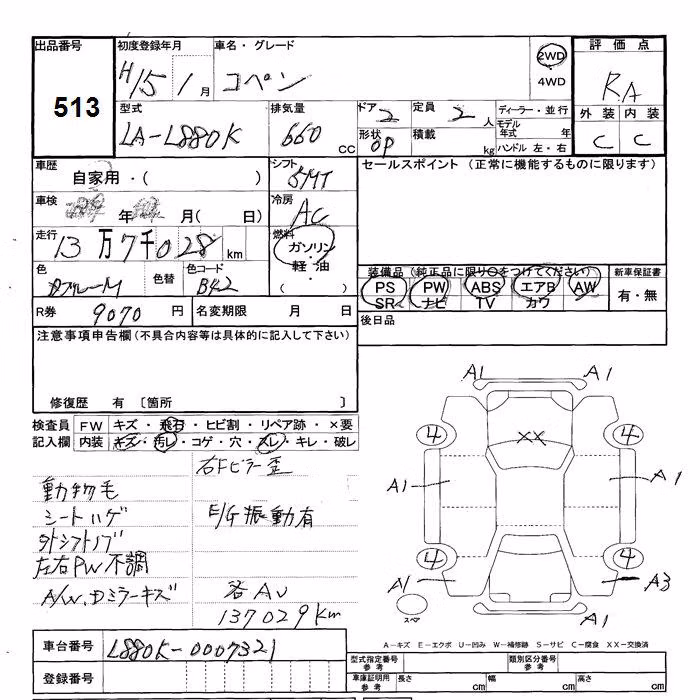 出品番号 初度登録年月 車名・グレード 2WD 評価点
513 H15 1月 コペン 4WD RA
型式 排気量 ドア 2 定員 2人 ディーラー・並行 外装 内装
LA-L880K 660 CC 形状 OP 積載 kg モデル年式 年 C C
ハンドル 左・右
車歴 自家用・( ) シフト 5MT セールスポイント (正常に機能するものに限ります)
車検 年 月( 日) 冷房 AC
走行 13万7千028km 燃料 ガソリン・軽油・( )
色 色替 色コード B42 装備品(純正品に限り○をつけてください) 新車保証書
PS PW ABS エアB AW 有・無
SR ナビ TV カワ
R券 9070円 名変期限 月 日 後日品
注意事項申告欄(不具合内容等は具体的に記入して下さい)
修復歴 有 〔箇所 〕
検査員記入欄 FW キズ・飛石・ヒビ割・リペア跡・×要
内装 キズ・汚レ・コゲ・穴・スレ・キレ・破レ
右Fピラー歪
動物毛
シートハゲ E/G振動有
外シフトノブ
左右PW不調
A/W、Dミラーキズ 各AU
137029Km
A1 A1
4 XX 4
A1 A1
4 4
A1 A3
スペア A1
A-キズ E-エクボ U-凹み W-補修跡 S-サビ C-腐食 XX-交換済
車台番号 L880K-0007321
型式指定番号 参考 類別区分番号 参考
登録番号 車庫証明用 参考 長さ cm 幅 cm 高さ cm